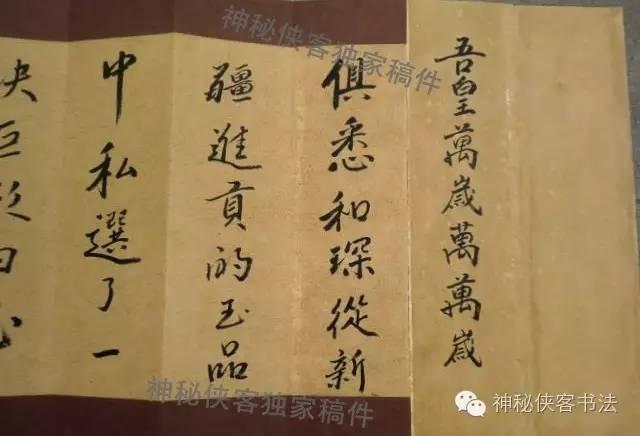 吾皇萬歲萬萬歲
俱悉和琛從新
疆進貢的玉品
中私選了一
神秘侠客独家稿件
神秘侠客独家稿件
神秘侠客书法